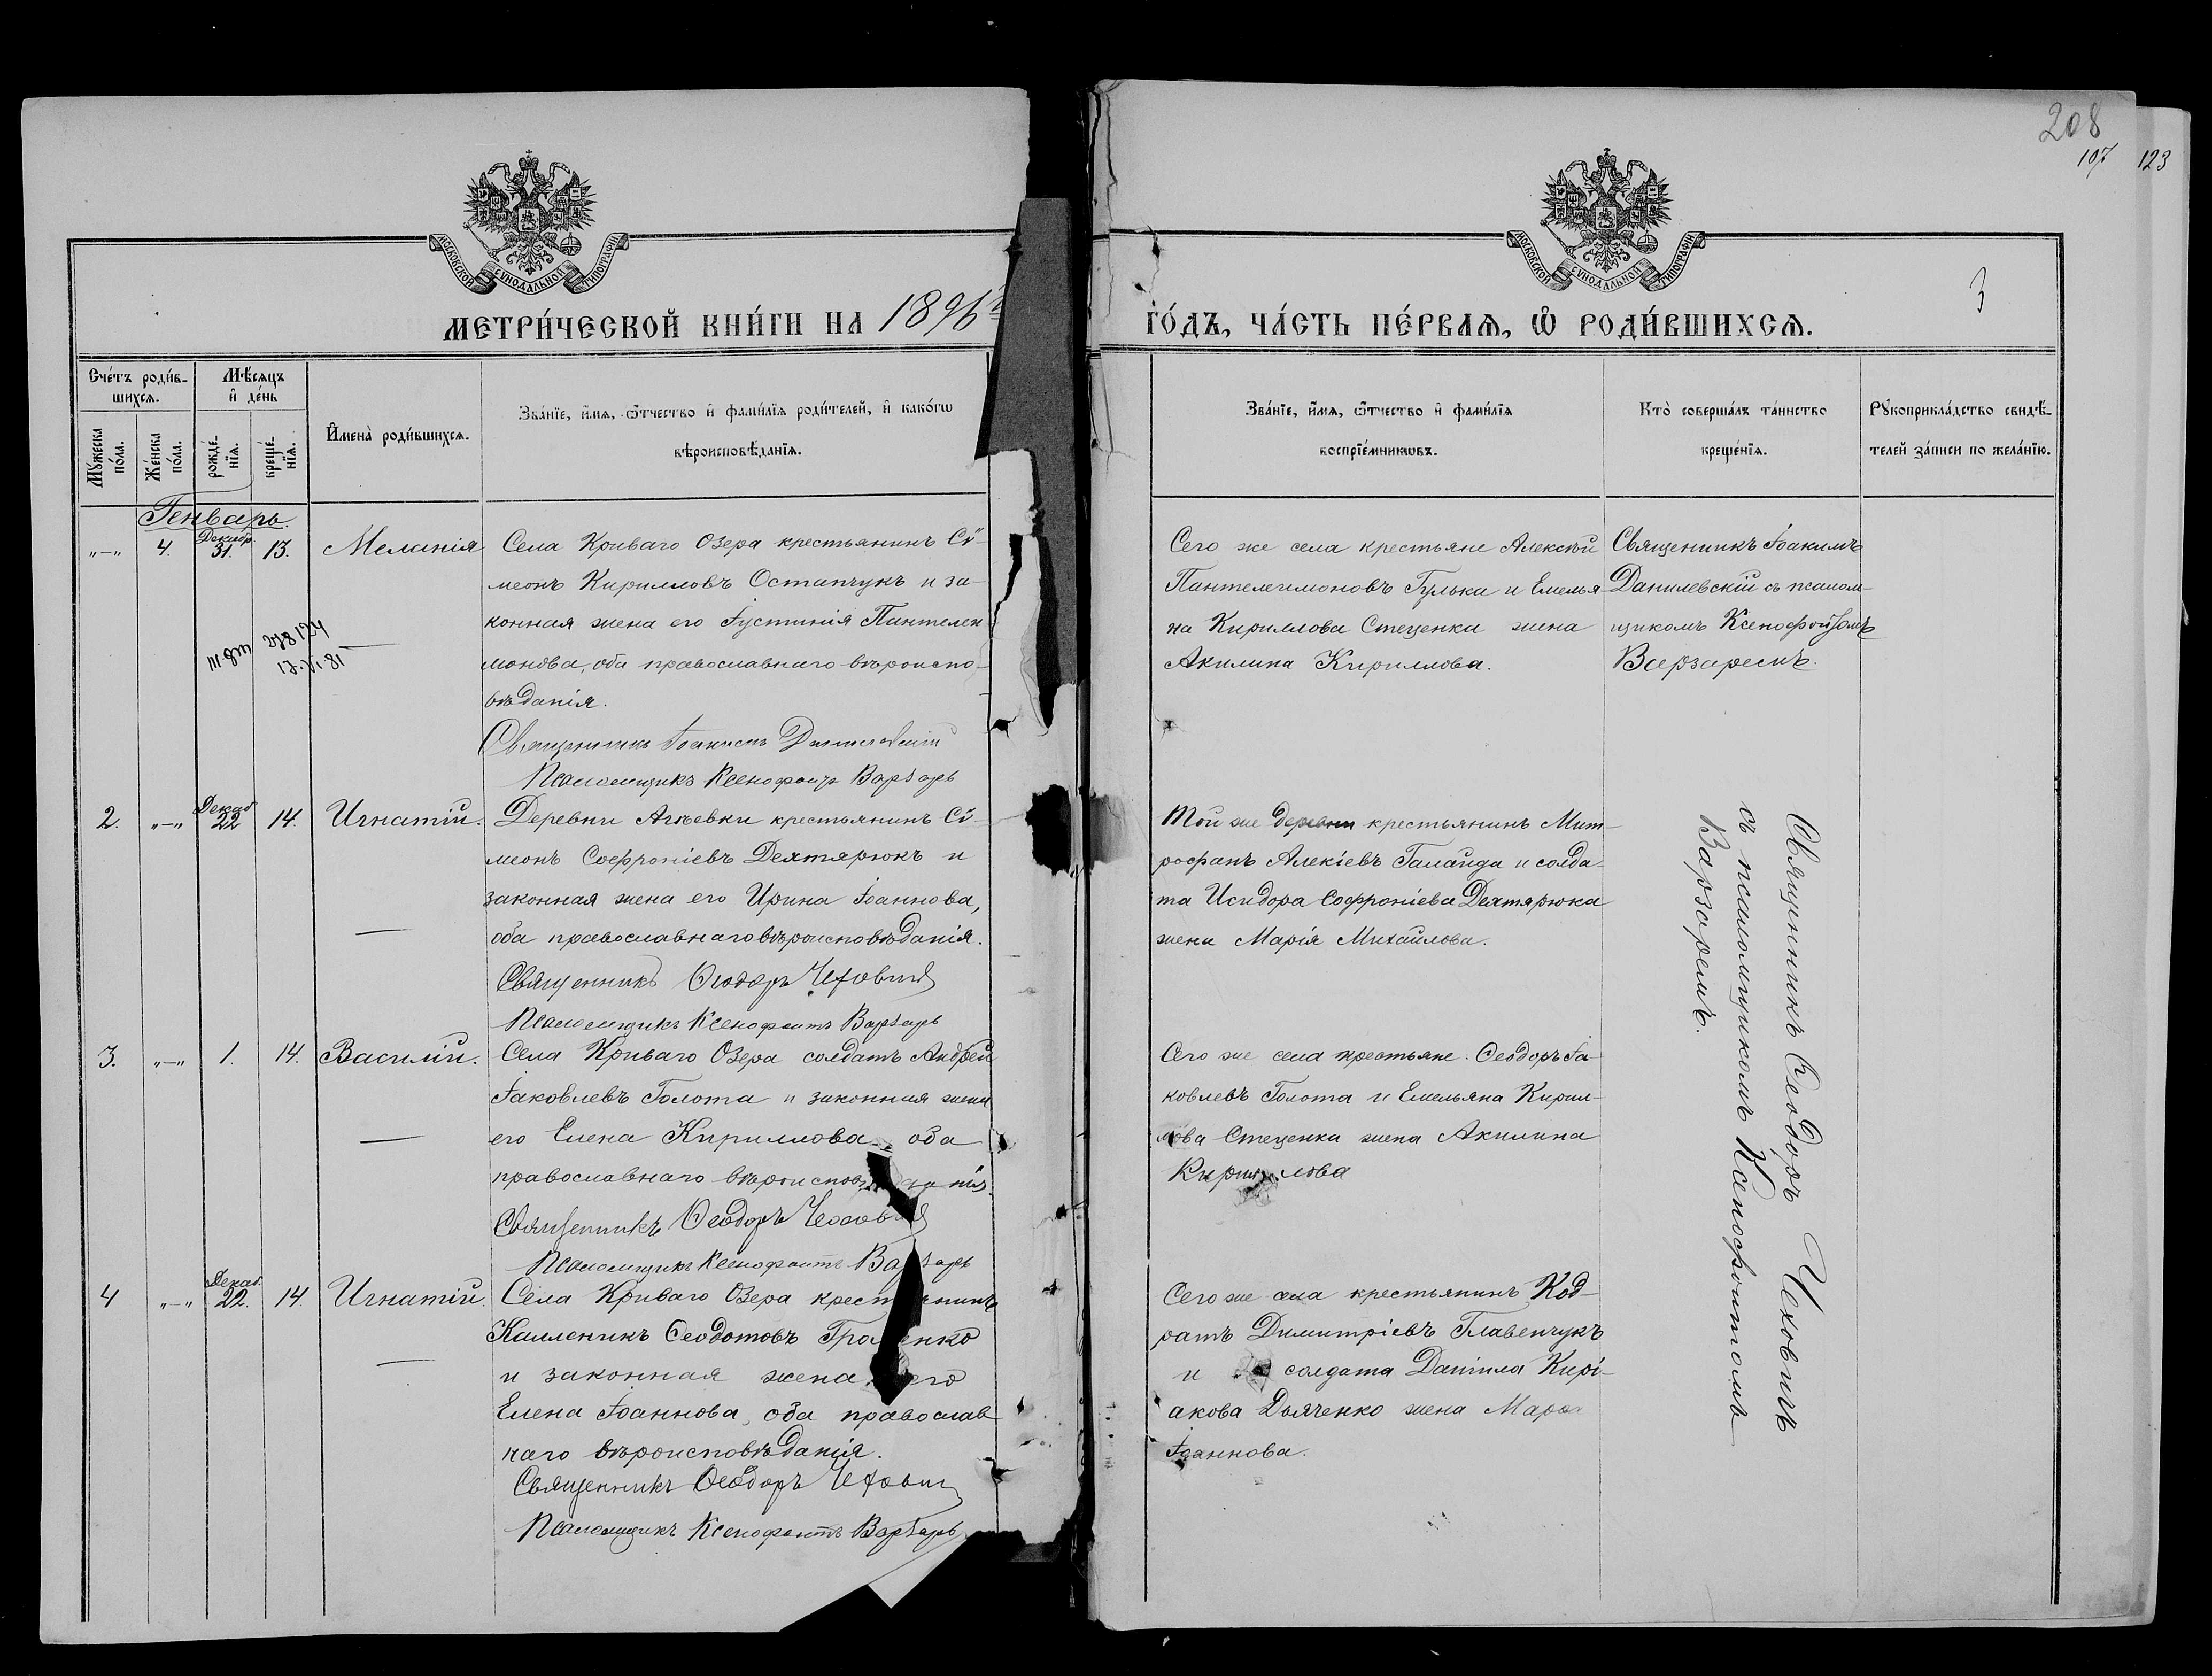 208
107 123
МОСКОВСКОЙ СѴНОДАЛЬНОЙ ТИПОГРАФІИ
МОСКОВСКОЙ СѴНОДАЛЬНОЙ ТИПОГРАФІИ
3
МЕТРИ́ЧЕСКОЙ КНИ́ГИ НА 1896
ГО́ДЪ, ЧА́СТЬ ПЕ́РВАѦ, Ѽ РОДИ́ВШИХСѦ.
Сче́тъ роди́в-
шихсѧ.
Мѣ́сѧцъ
и҆ де́нь
Мꙋ́жеска
по́ла.
Же́нска
по́ла.
рожде́-
нїѧ.
креще́-
нїѧ.
И҆мена̀ роди́вшихсѧ.
Зва́нїе, и҆́мѧ, ѻ҆́тчество и҆ фами́лїѧ роди́телей, и҆ како́гѡ
вѣроисповѣ́данїѧ.
Зва́нїе, и҆́мѧ, ѻ҆́тчество и҆ фами́лїѧ
воспрїе́мникѡвъ.
Кто̀ соверша́лъ та́инство
креще́нїѧ.
Рꙋкоприкла́дство свидѣ́-
телей за́писи по жела́нїю.
Генварь.
„—„ 4. Декабр. 31. 13. Меланія
Села Криваго Озера крестьянинъ Сі-
меонъ Кирилловъ Остапчукъ и за-
конная жена его Іустинія Пантелеи
монова, оба православнаго вѣроиспо-
вѣданія.
Священникъ Іоакимъ Данилевскій
Псаломщикъ Ксенофонтъ Варзарь
Сего же села крестьяне Алексѣй
Пантелеимоновъ Гулька и Емелья-
на Кириллова Стеценка жена
Акилина Кириллова.
Священникъ Іоакимъ
Данилевскій съ псалом-
щикомъ Ксенофонтомъ
Варзаремъ.
278124
17.VI.81
2. „—„ Декаб 22 14. Игнатій.
Деревни Агѣевки крестьянинъ Сі-
меонъ Софроніевъ Дехтярюкъ и
законная жена его Ирина Іоаннова,
оба православнаго вѣроисповѣданія.
Священникъ Ѳеодоръ Чеховичъ
Псаломщикъ Ксенофонтъ Варзарь
Той же деревни крестьянинъ Мит-
рофанъ Алекіевъ Галайда и солда-
та Исидора Софроніева Дехтярюка
жена Марія Михайлова.
Священникъ Ѳеодоръ Чеховичъ
съ псаломщикомъ Ксенофонтомъ
Варзаремъ.
3. „—„ 1. 14. Василій.
Села Криваго Озера солдатъ Андрей
Іаковлевъ Голота и законная жена
его Елена Кириллова, оба
православнаго
Священникъ Ѳеодоръ
Псаломщикъ Ксенофонтъ Варзарь
Сего же села крестьяне: Ѳеодоръ Іа-
ковлевъ Голота и Емельяна Кирил-
лова Стеценка жена Акилина
Кириллова
4 „—„ Декаб. 22. 14. Игнатій.
Села Криваго Озера крестьянинъ
Каллиникъ Ѳеодотовъ
и законная жена его
Елена Іоаннова, оба православ
наго вѣроисповѣданія.
Священникъ Ѳеодоръ Чеховичъ
Псаломщикъ Ксенофонтъ Варзарь
Сего же села крестьянинъ Код-
ратъ Димитріевъ Главенчукъ
и солдата Даніила Кирі-
акова Дьяченко жена
Іоаннова.